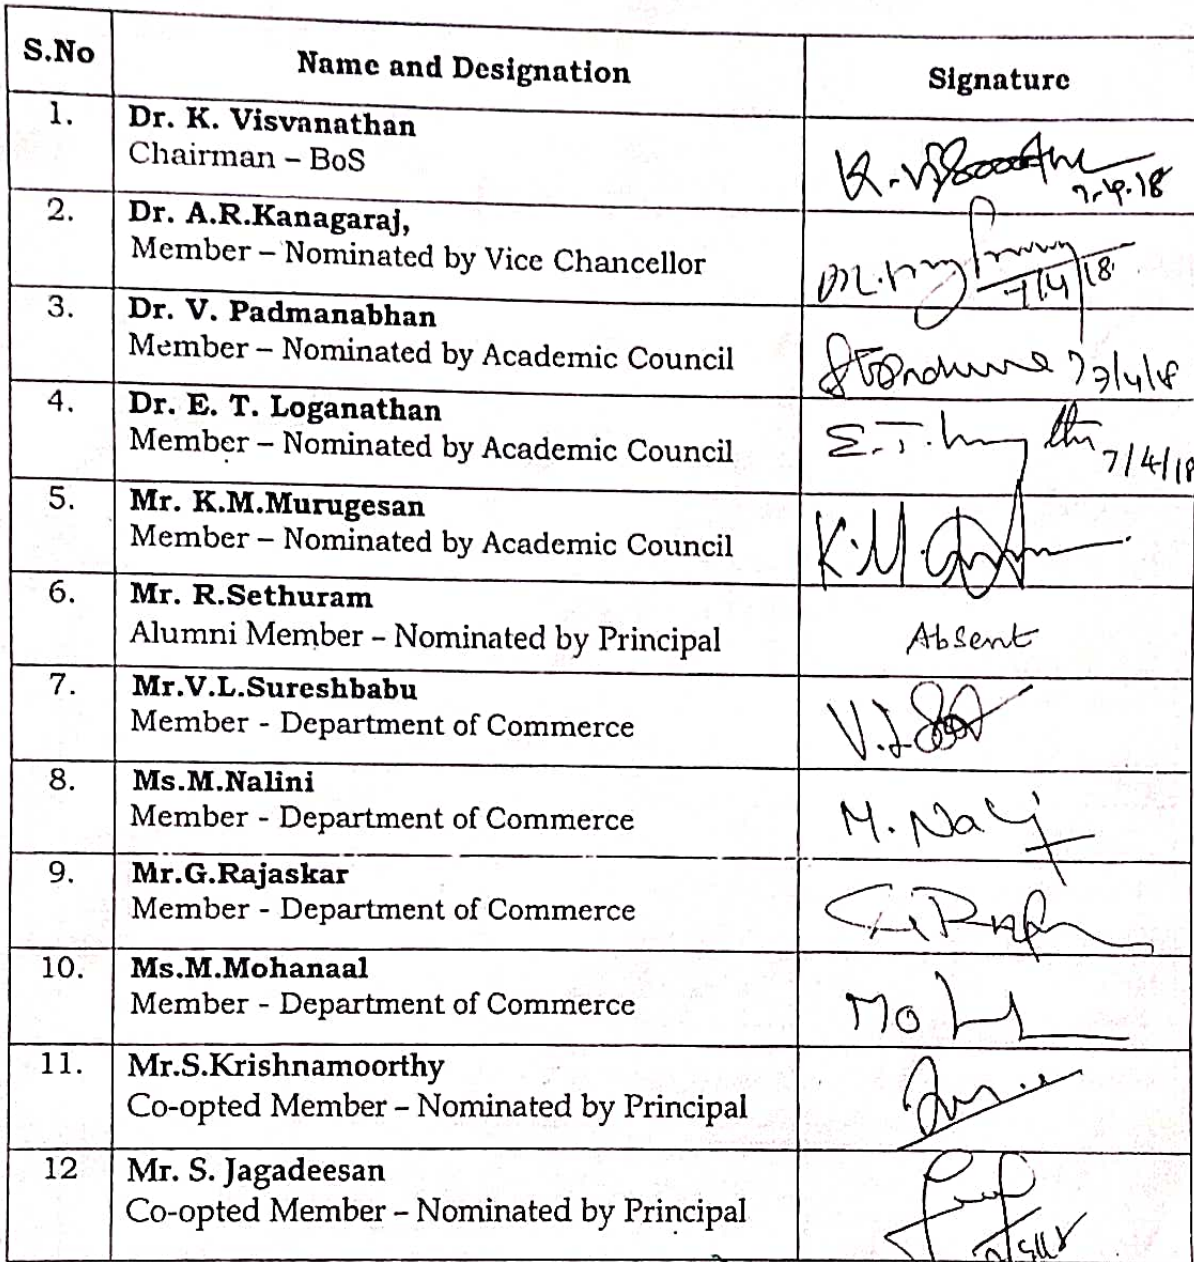 S.No Name and Designation Signature
1. Dr. K. Visvanathan
Chairman – BoS
7.4.18
2. Dr. A.R.Kanagaraj,
Member – Nominated by Vice Chancellor
7/4/18
3. Dr. V. Padmanabhan
Member – Nominated by Academic Council
7/4/18
4. Dr. E. T. Loganathan
Member – Nominated by Academic Council
E.T.
7/4/18
5. Mr. K.M.Murugesan
Member – Nominated by Academic Council
K.M.
6. Mr. R.Sethuram
Alumni Member – Nominated by Principal
Absent
7. Mr.V.L.Sureshbabu
Member - Department of Commerce
8. Ms.M.Nalini
Member - Department of Commerce
9. Mr.G.Rajaskar
Member - Department of Commerce
10. Ms.M.Mohanaal
Member - Department of Commerce
11. Mr.S.Krishnamoorthy
Co-opted Member – Nominated by Principal
12 Mr. S. Jagadeesan
Co-opted Member – Nominated by Principal